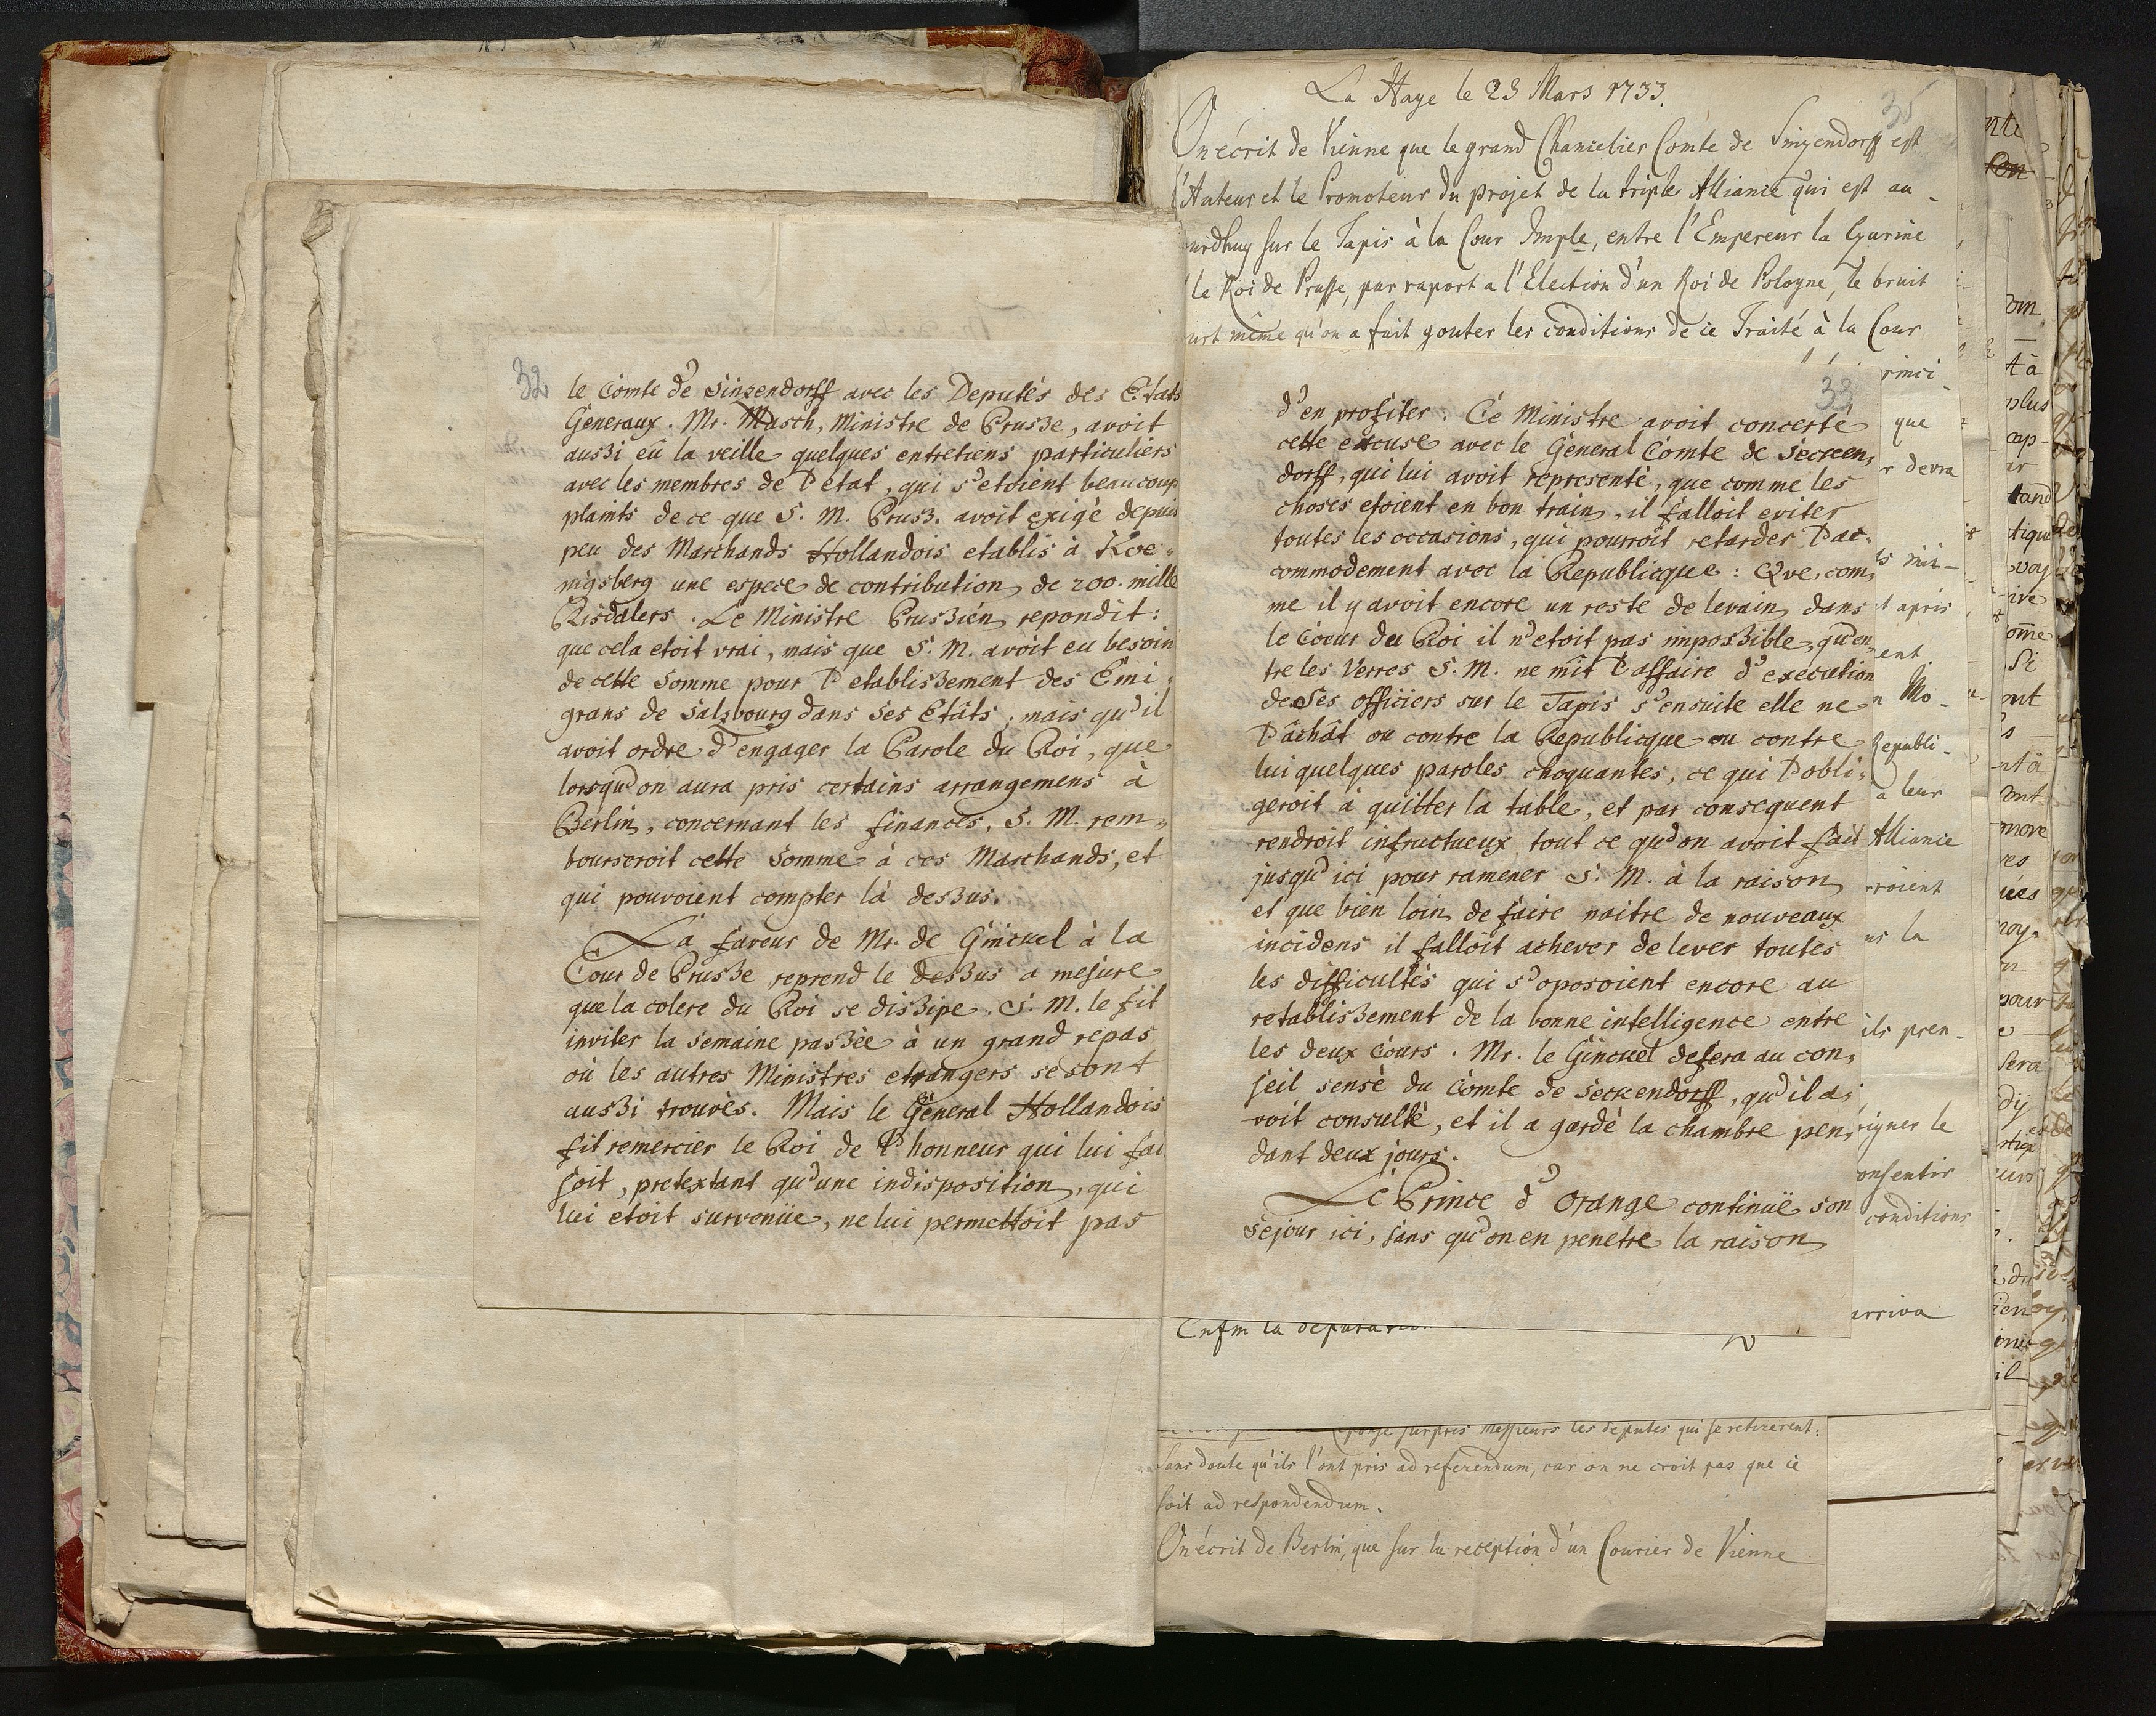 32
le Comte de Sinzendorff avec les Deputés des Etats
Generaux. Mr. Masch, Ministre de Prusse, avoit
aussi eû la veille quelques entretiens particuliers
avec les membres de l'etat, qui s'etoient beaucoup
plaints de ce que S. M. Pruss. avoit exigé depuis
peu des Marchands Hollandois etablis à Koe=
nigsberg une espece de contribution de 200. mille
Risdalers. Le Ministre Prussien repondit:
que cela etoit vrai, mais que S. M. avoit eu besoin
de cette somme pour l'etablissement des Emi=
grans de Salzbourg dans ses Etâts, mais qu'il
avoit ordre d'engager la Parole du Roi, que
lorsqu'on aura pris certains arrangemens à
Berlin, concernant les finances, S. M. rem=
bourseroit cette somme à ces Marchands, et
qui pouvoient compter là dessus.
La faveur de Mr. de Ginckel à la
Cour de Prusse reprend le dessus a mesure
que la colere du Roi se dissipe. S. M. le fit
inviter la semaine passée à un grand repas
où les autres Ministres etrangers se sont
aussi trouvès. Mais le General Hollandois
fit remercier le Roi de l'honneur qui lui fai
soit, pretextant qu'une indisposition, qui
lui etoit survenüe, ne lui permettoit pas
33
d'en profiter. Ce Ministre avoit concerté
cette excuse avec le General Comte de Secken=
dorff, qui lui avoit representé, que comme les
choses etoient en bon train, il falloit eviter
toutes les occasions, qui pourroit retarder l'ac=
commodement avec la Republicque: Que, com=
me il y avoit encore un reste de levain dans
le Coeur du Roi il n'etoit pas impossible, qu'en=
tre les Verres S. M. ne mît l'affaire d'execution
de ses officiers sur le Tapis s'ensuite elle ne
l'âchât ou contre la Republicque ou contre
lui quelques paroles choquantes, ce qui l'obli=
geroit à quitter la table, et par consequent
rendroit infructueux tout ce qu'on avoit fait
jusqu'ici pour ramener S. M. à la raison
et que bien loin de faire naitre de nouveaux
incidens il falloit achever de lever toutes
les difficultés qui s'oposoient encore au
retablissement de la bonne intelligence entre
les deux Cours. Mr. le Ginckel defera au con=
seil sensé du Comte de Seckendorff, qu'il a=
voit consulté, et il a gardé la chambre pen=
dant deux jours.
Le Prince d'Orange continuë son
sejour ici, sans qu'on en penetre la raison
35
La Haye le 23 Mars 1733.
On écrit de Vienne que le grand Chancelier Comte de Sinzendorff est
l'Auteur et le Promoteur du projet de la triple Alliance qui est au
urdhuy sur le Tapis à la Cour Imple, entre l'Empereur la Czarine
le Roi de Prusse, par raport a l'Election d'un Roi de Pologne, le bruit
urt même qu'on a fait gouter les conditions de ce Traité à la Cour
rinci
que
r devra
t apris
ent
n Mo
Republi
a leur
Alliance
rroient
ns la
ils pren
signer le
onsentir
conditions
arriva
Enfin la deputation
ponse surpris Messieurs les deputés qui se retirerent:
sans doute qu'ils l'ont pris ad referendum, car on ne croit pas que ce
soit ad respondendum.
On écrit de Berlin, que sur la reception d'un Courier de Vienne